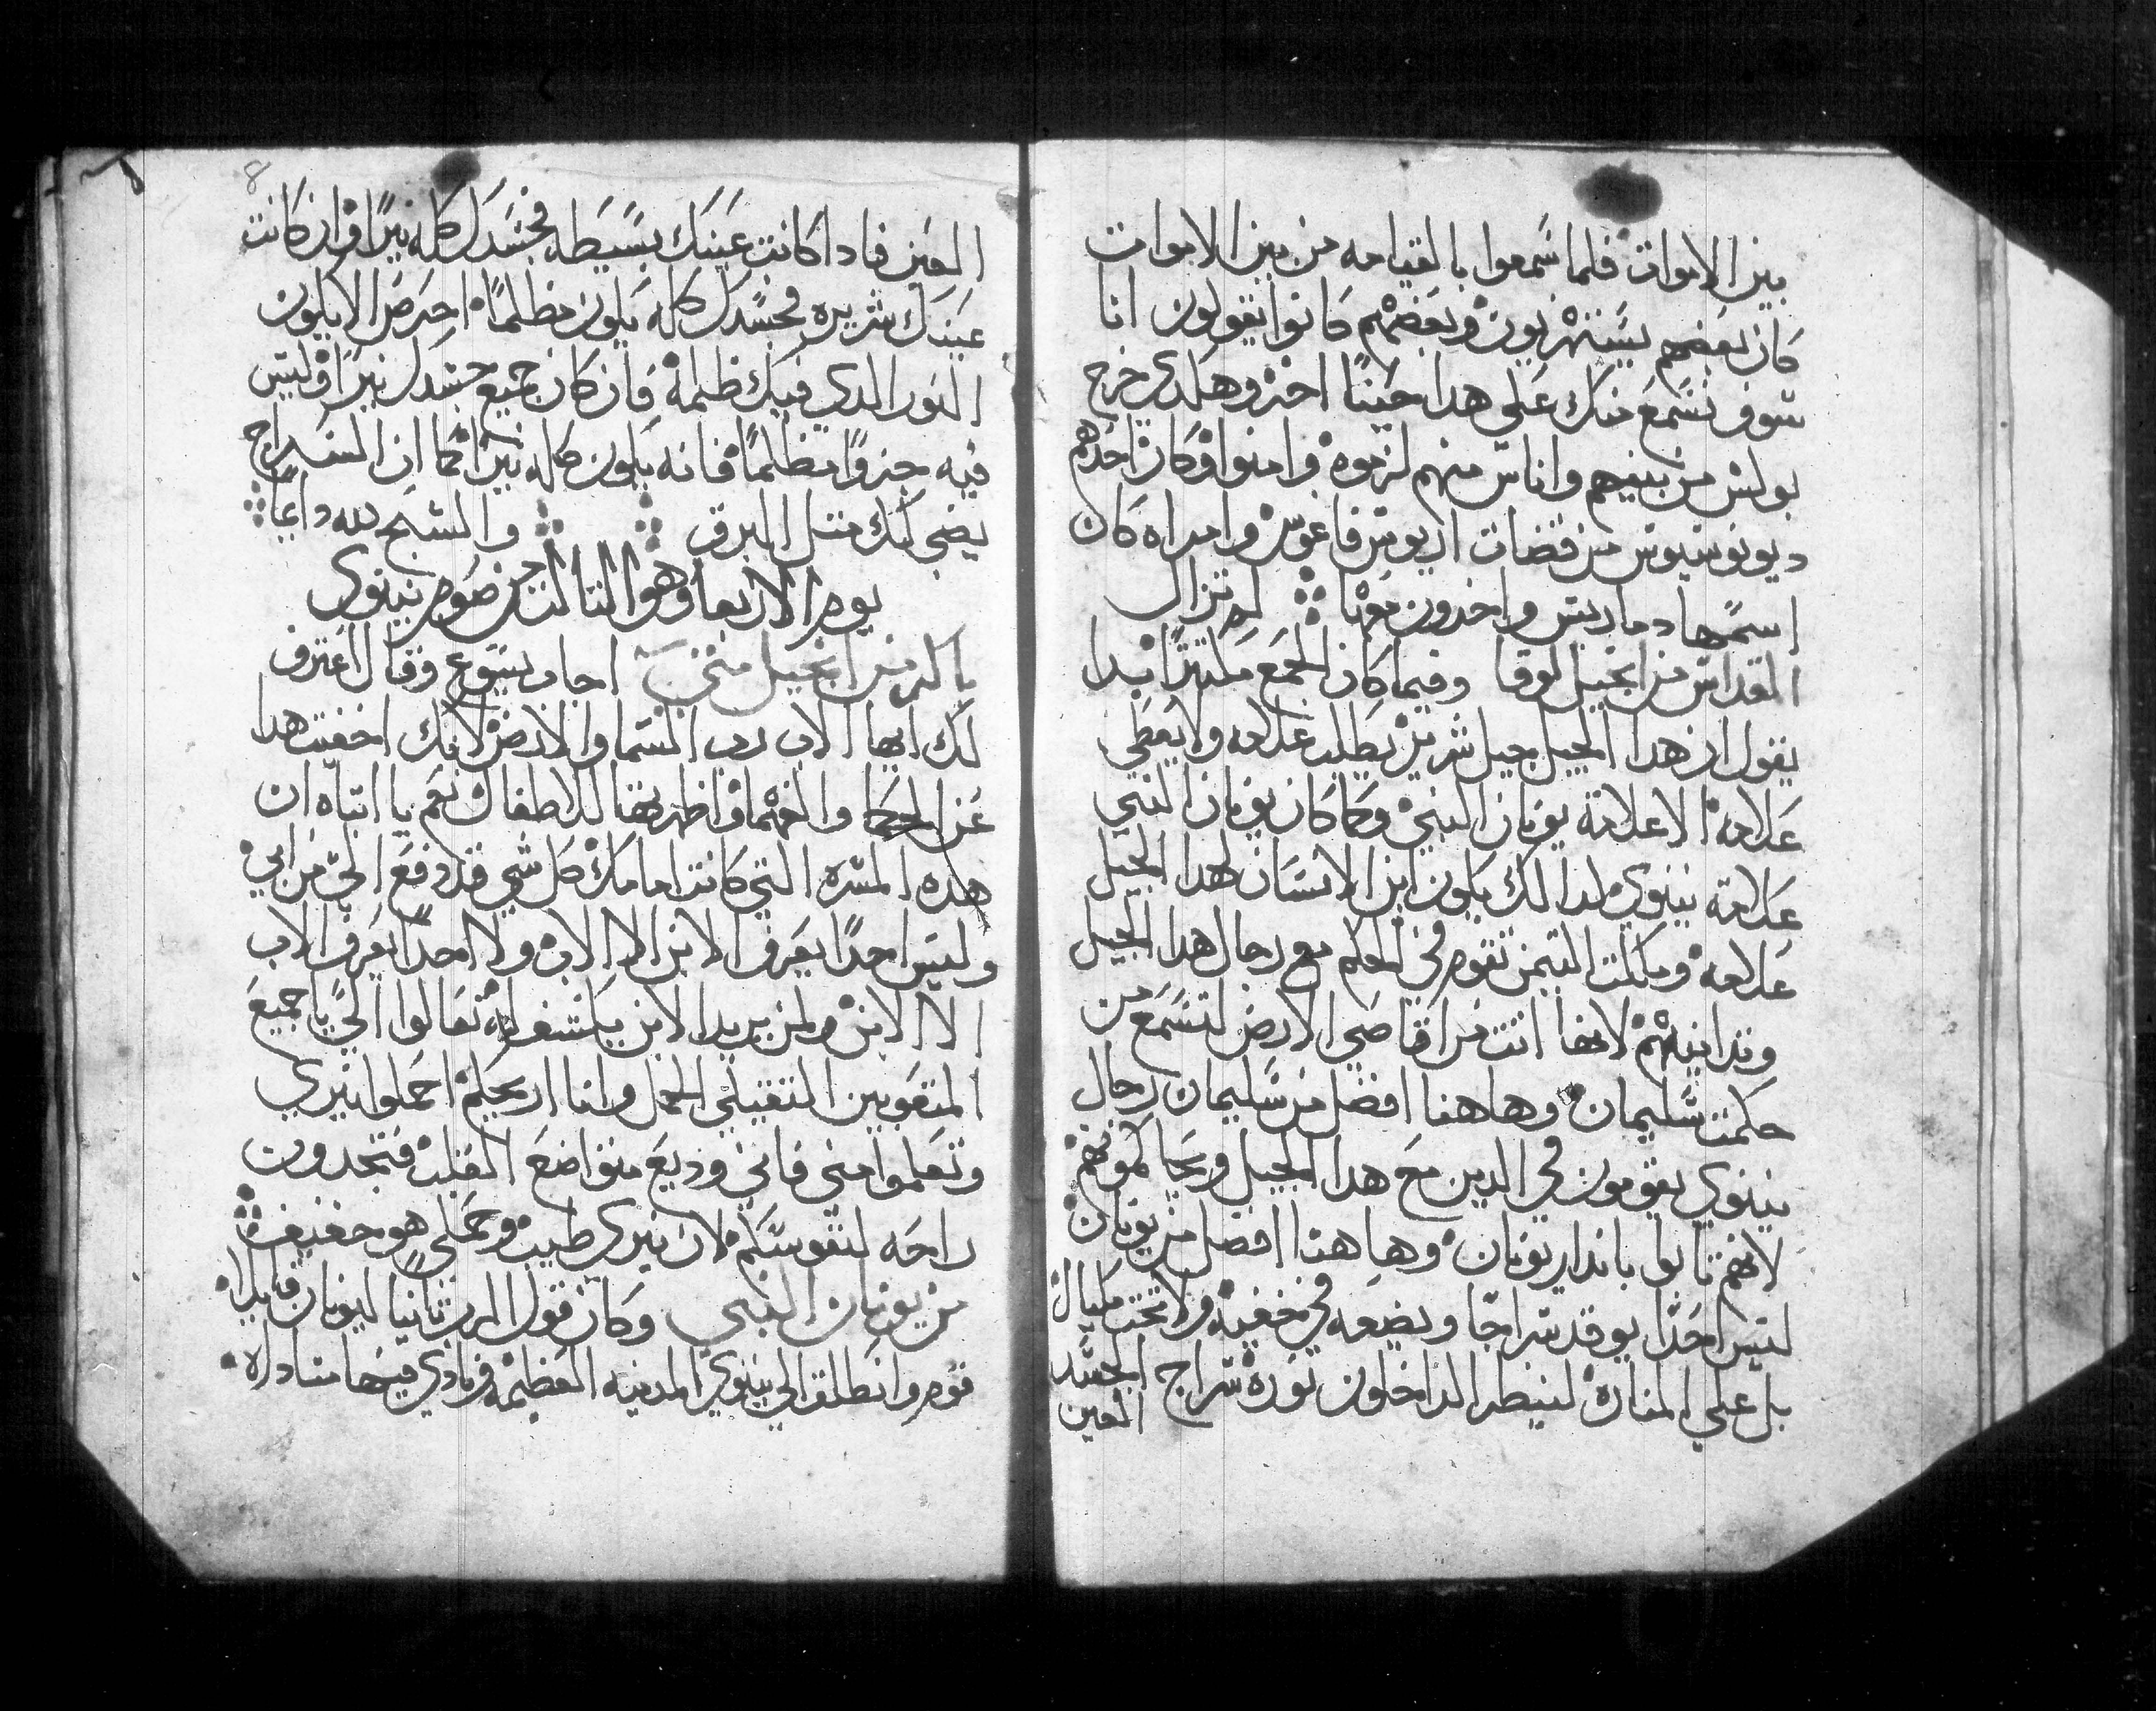 بين الاموات فلما سمعوا بالقيامه من بين الاموات
كان بعضهم يستهزيون وبعضهم كانوا يقولون انا
سوف نسمع منك على هدا حينًا اخر وهكدي خرج
بولس من بينهم واناس منهم لزموه وامنوا وكان احدهم
ديونوسيوس من قضات اريوس فاغوس وامراه كان
اسمها دماريس واخرون معها لم تزال
القداس من انجيل لوقا وفيما كان الجمع ملتيمًا بدا
يقول ان هدا الجيل جيل شرير يطلب علامه ولا يعطي
علامه الا علامة يونان النبي وكما كان يونان النبي
علامة نينوي كدالك يكون ابن الانسان لهدا الجيل
علامه وملكت التيمن تقوم في الحكم مع رجال هدا الجيل
وتدانيهم لانها اتت من اقاصي الارض لتسمع من
حكمت سليمان وهاهنا افضل من سليمان رجال
نينوي يقومون في الدين مع هدا الجيل ويحاكمونهم
لانهم تابوا باندار يونان وهاهنا افضل من يونان
ليس احدًا يوقد سراجًا ويضعه في خفيه ولا تحت مكيال
بل علي المناره لينظر الداخلون نوره سراج الجسد
العين
8
العين فادا كانت عينك بسيطه فجسدك كله نيرًا وان كانت
عينك شريره فجسدك كله يكون مظلمًا احرص الا يكون
النور الدي فيك ظلمه فان كان جميع جسدك نيرًا وليس
فيه جزوًا مظلمًا فانه يكون كله نيرًا كما ان السراج
يضي لك متل البرق والسبح لله دايمًا
يوم الاربعا وهو التالت من صوم نينوي
باكر من انجيل متي اجاب يسوع وقال اعترف
لك ايها الاب رب السما والارض لانك اخفيت هدا
عن الحكما والفهما واظهرتها للاطفال نعم يا ابتاه ان
هده المسره التي كانت امامك كل شي قد دفع الي من ابي
وليس احدًا يعرف الابن الا الاب ولا احدًا يعرف الاب
الا الابن ولمن يريد الابن يكشف له تعالوا الي يا جميع
المتعوبين التقيلي الحمل وانا اريحكم احملوا نيري
وتعلموا مني فاني وديع متواضع القلب فتجدون
راحه لنفوسكم لان نيري طيب وحملي هو خفيف
من يونان النبي وكان قول الرب تانيا ليونان قايلا
قوم وانطلق الي نينوي المدينه العظيمه ونادي فيها مناداه